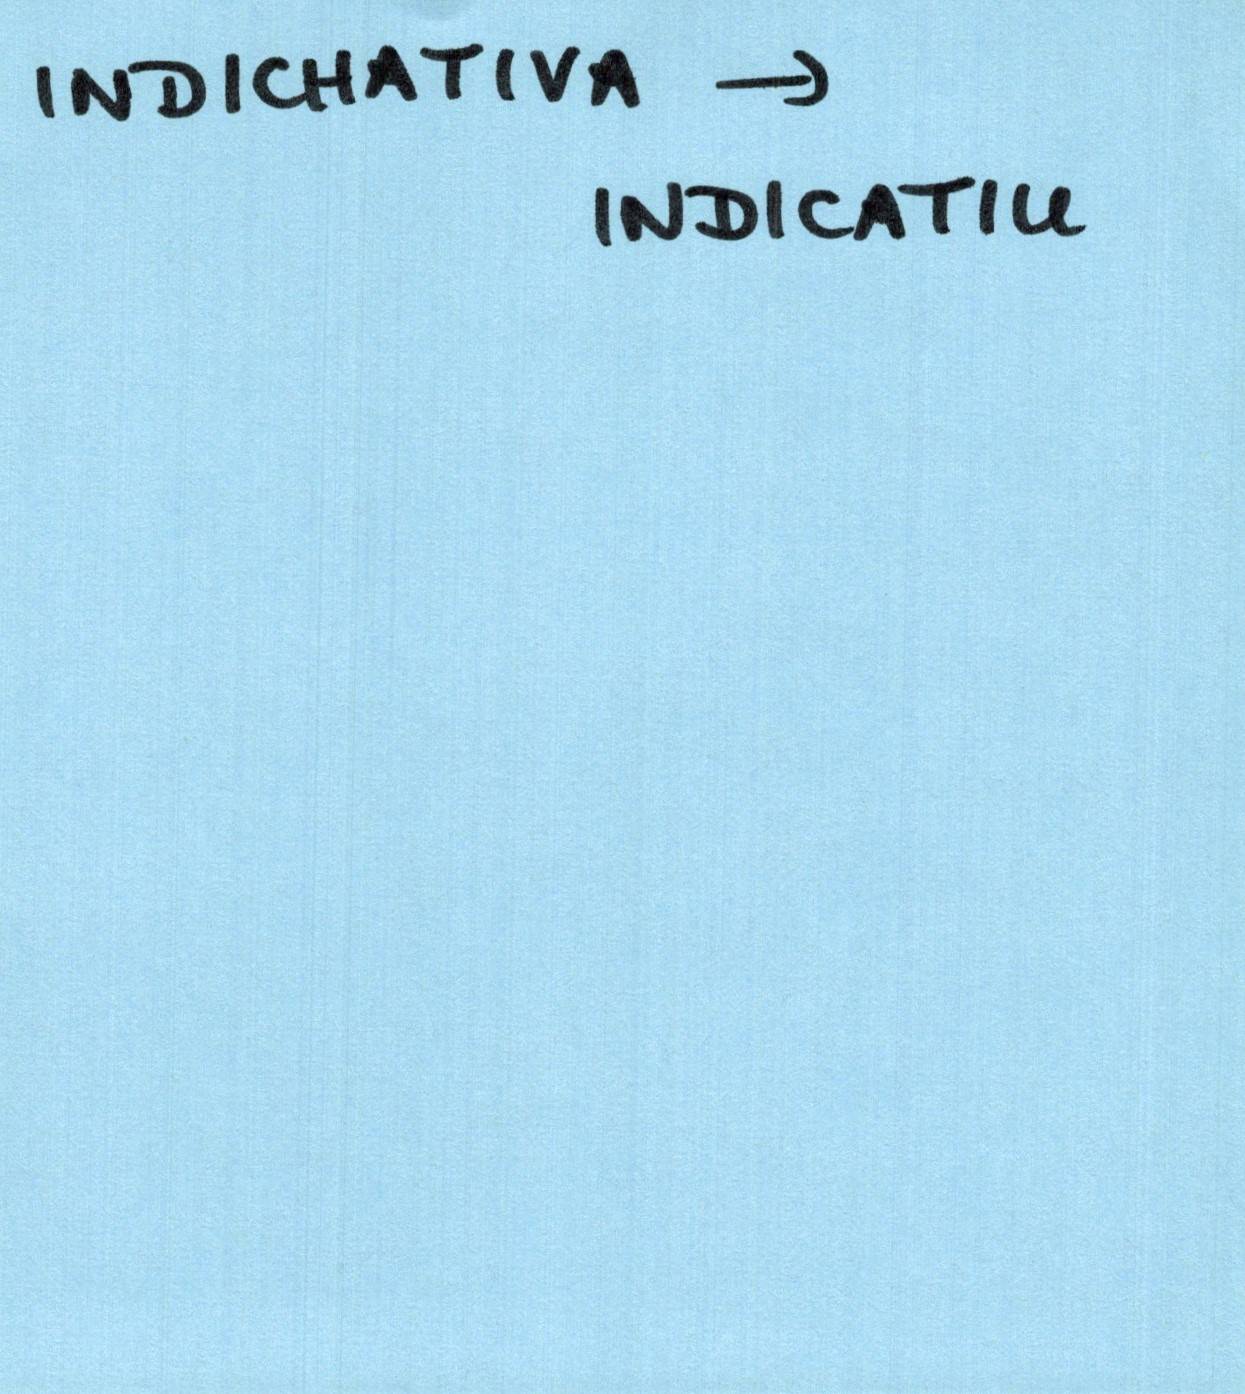 INDICHATIVA →
INDICATIU